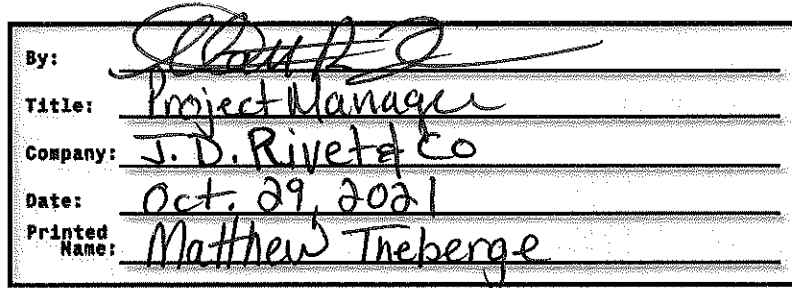 By:
Title: Project Manager
Company: J. D. Rivet & Co
Date: Oct. 29, 2021
Printed Name: Matthew Theberge